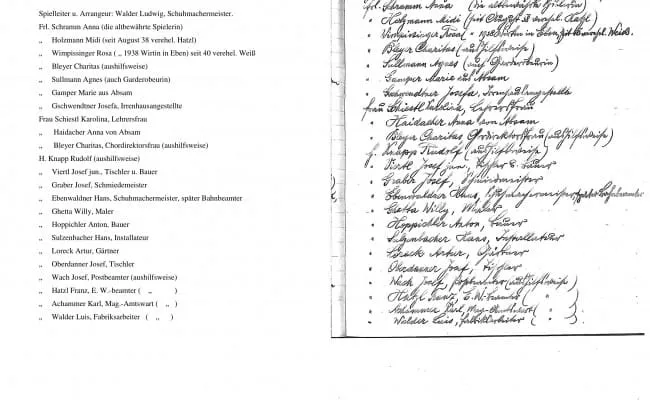 Spielleiter u. Arrangeur: Walder Ludwig, Schuhmachermeister.
Frl. Schramm Anna (die altbewährte Spielerin)
„ Holzmann Midi (seit August 38 verehel. Hatzl)
„ Wimpissinger Rosa ( „ 1938 Wirtin in Eben) seit 40 verehel. Weiß
„ Bleyer Charitas (aushilfsweise)
„ Sullmann Agnes (auch Garderobeurin)
„ Gamper Marie aus Absam
„ Gschwendtner Josefa, Irrenhausangestellte
Frau Schiestl Karolina, Lehrersfrau
„ Haidacher Anna von Absam
„ Bleyer Charitas, Chordirektorsfrau (aushilfsweise)
H. Knapp Rudolf (aushilfsweise)
„ Viertl Josef jun., Tischler u. Bauer
„ Graber Josef, Schmiedemeister
„ Ebenwaldner Hans, Schuhmachermeister, später Bahnbeamter
„ Ghetta Willy, Maler
„ Hoppichler Anton, Bauer
„ Sulzenbacher Hans, Installateur
„ Loreck Artur, Gärtner
„ Oberdanner Josef, Tischler
„ Wach Josef, Postbeamter (aushilfsweise)
„ Hatzl Franz, E. W.-beamter ( „ )
„ Achammer Karl, Mag.-Amtswart ( „ )
„ Walder Luis, Fabriksarbeiter ( „ )
Frl. Schramm Anna (die altbewährte Spielerin)
" Holzmann Midi (seit August 38 verehel. Hatzl)
" Wimpissinger Rosa ( " 1938 Wirtin in Eben, seit 40 verehel. Weiß
" Bleyer Charitas (aushilfsweise)
" Sullmann Agnes (auch Garderobeurin)
" Gamper Marie aus Absam
" Gschwendtner Josefa, Irrenhausangestellte
Frau Schiestl Karolina, Lehrersfrau
" Haidacher Anna von Absam
" Bleyer Charitas Chordirektorsfrau (aushilfsweise)
H. Knapp Rudolf (aushilfsweise)
" Viertl Josef jun., Tischler u. Bauer
" Graber Josef, Schmiedmeister
" Ebenwaldner Hans, Schuhmachermeister, später Bahnbeamter
" Ghetta Willy, Maler
" Hoppichler Anton, Bauer
" Sulzenbacher Hans, Installateur
" Loreck Artur, Gärtner
" Oberdanner Josef, Tischler
" Wach Josef, Postbeamter (aushilfsweise)
" Hatzl Franz, E. W. beamter ( " )
" Achammer Karl, Mag.-Amtswart ( " )
" Walder Luis, Fabriksarbeiter ( " )